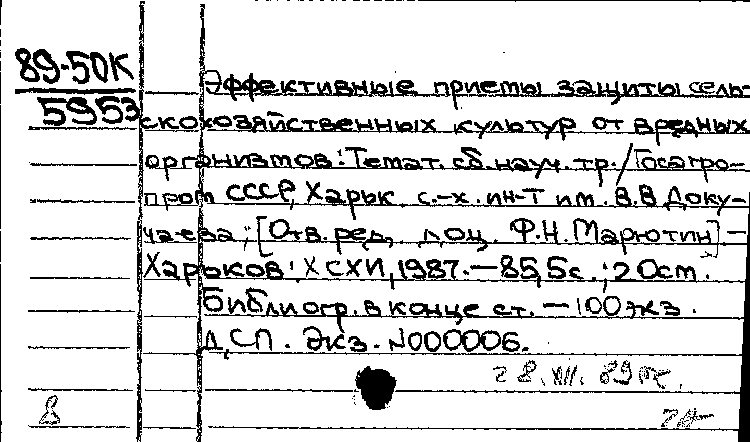 89-50К
5953
Эффективные приемы защиты сель-
скохозяйственных культур от вредных
организмов: Темат. сб. науч. тр. / Госагро-
пром СССР, Харьк. с.-х. ин-т им. В.В Доку-
чаева; [Отв. ред. доц. Ф.Н. Марютин] -
Харьков: ХСХИ, 1987. - 85,5с.; 20см.
Библиогр. в конце ст. - 100 экз.
ДСП. Экз. N000006.
28.VII.89